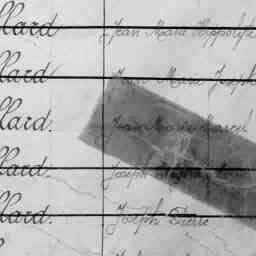 llard Jean Marie Hippolyte
llard Jean Marie Joseph
llard. Jean Marie Marcel
llard Joseph
llard. Joseph Pierre